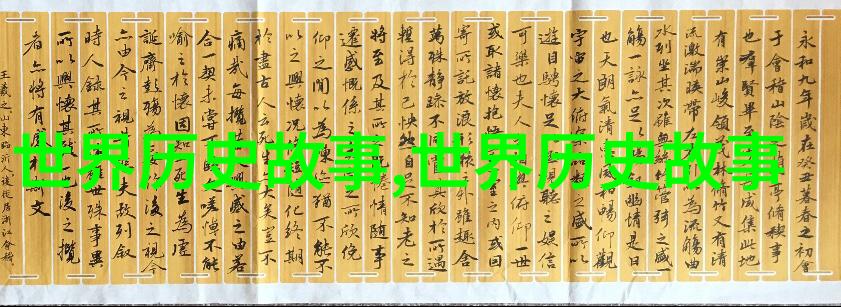 世界历史故事,世界历史故事
永和九年歲在癸丑暮春之初會
于會稽山陰之亭脩稧事
也群賢畢至咸集此地
有崇山峻領茂林脩竹又有清
流激湍暎帶左為流觴曲
水列坐其次雖無絲竹管弦之盛一
觴一詠亦足以幽情是日
也天朗氣清和暢仰觀
宇宙之大俯察品類之盛所以
遊目騁懷足視聽之娛信
可樂也夫人俯仰一世
或取諸懷抱悟之內或因
寄所託放浪形骸之外雖趣舍
萬殊靜躁不同當其欣於所遇
暫得於己快然自足不知老之
將至及其所惓情隨事
遷感慨係之之所欣俛
仰之閒以為陳猶不能不
以之興懷況短隨化終期
於盡古人云死生大矣豈不
痛哉每攬興感之由若
合一契未嘗嗟悼不能
喻之於懷固知死生為虛
誕齊彭殤為後之視今
亦由今之視夫故列叙
時人錄其雖世殊事異
所以興懷其致也後之攬
者亦將有感斯文
王羲之山東臨沂人後徙居浙江會稽